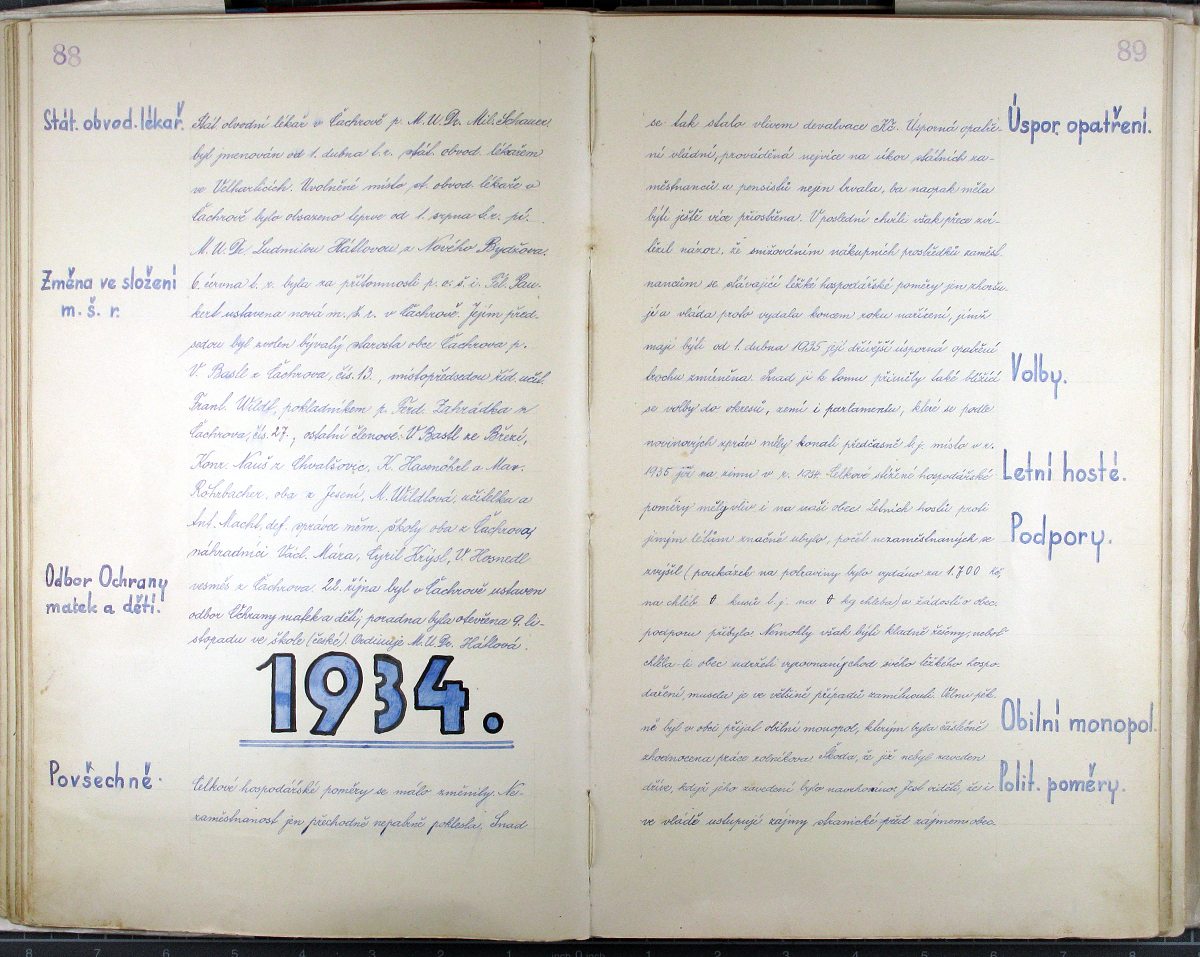 88
Stát. obvod. lékař.
Stát. obvodní lékař v Čachrově p. M.U.Dr. Mil. Schauer
byl jmenován od 1. dubna t. r. stát. obvod. lékařem
ve Velharticích. Uvolněné místo st. obvod. lékaře v
Čachrově bylo obsazeno teprve od 1. srpna t. r. pí.
M.U.Dr. Ludmilou Hátlovou z Nového Bydžova.
Změna ve složení
m. š. r.
6. června t. r. byla za přítomnosti p. o. š. i. Pau-
kert ustavena nová m. š. r. v Čachrově. Jejím před-
sedou byl zvolen bývalý starosta obce Čachrova p.
V. Bastl z Čachrova, čís. 13., místopředsedou říd. učit.
Frant. Wildt, pokladníkem p. Ferd. Zahrádka z
Čachrova, čís. 27., ostatní členové: V. Bastl ze Březí,
Konr. Nauš z Chvalšovic, K. Hasenöhrl a Mar.
Rohrbacher, oba z Jesení, M. Wildtová, učitelka a
Ant. Machl, def. správce něm. školy oba z Čachrova,
náhradníci Václ. Mára, Cyril Krýsl, V. Hosnedl
vesměs z Čachrova.
Odbor Ochrany
matek a dětí.
22. října byl v Čachrově ustaven
odbor Ochrany matek a dětí; poradna byla otevřena 9. li-
stopadu ve škole (české). Ordinuje M.U.Dr. Hátlová.
1934.
Povšechně.
Celkové hospodářské poměry se málo změnily. Ne-
zaměstnanost jen přechodně nepatrně poklesla. Snad
89
se tak stalo vlivem devalvace Kč. Úsporná opatře-
Úspor. opatření.
ní vládní, prováděná nejvíce na úkor státních za-
městnanců a pensistů nejen trvala, ba naopak měla
býti ještě více přiostřena. V poslední chvíli však přece zví-
tězil názor, že snižováním nákupních prostředků zaměst-
nancům se stávající těžké hospodářské poměry jen zhoršu-
jí a vláda proto vydala koncem roku nařízení, jímž
mají býti od 1. dubna 1935 její dřívější úsporná opatření
trochu zmírněna. Snad ji k tomu přiměly také blížící
Volby.
se volby do okresů, zemí i parlamentu, které se podle
novinových zpráv měly konati předčasně t. j. místo v r.
1935 již na zimu v r. 1934. Celkové stížené hospodářské
Letní hosté.
poměry měly vliv i na naši obec. Letních hostů proti
jiným létům značně ubylo, počet nezaměstnaných se
Podpory.
zvýšil (poukázek na potraviny bylo vydáno za 1.700 Kč,
na chléb kusů t. j. na kg chleba) a žádostí o obec.
podporu přibylo. Nemohly však býti kladně řešeny, neboť
chtěla-li obec udržeti vyrovnaný chod svého těžkého hospo-
daření, musela je ve většině případů zamítnouti. Velmi pěk-
ně byl v obci přijat obilní monopol, kterým byla částečně
Obilní monopol.
zhodnocena práce rolníkova. Škoda, že již nebyl zaveden
dříve, když jeho zavedení bylo navrhováno. Jest viděti, že i
Polit. poměry.
ve vládě ustupují zájmy stranické před zájmem obec.